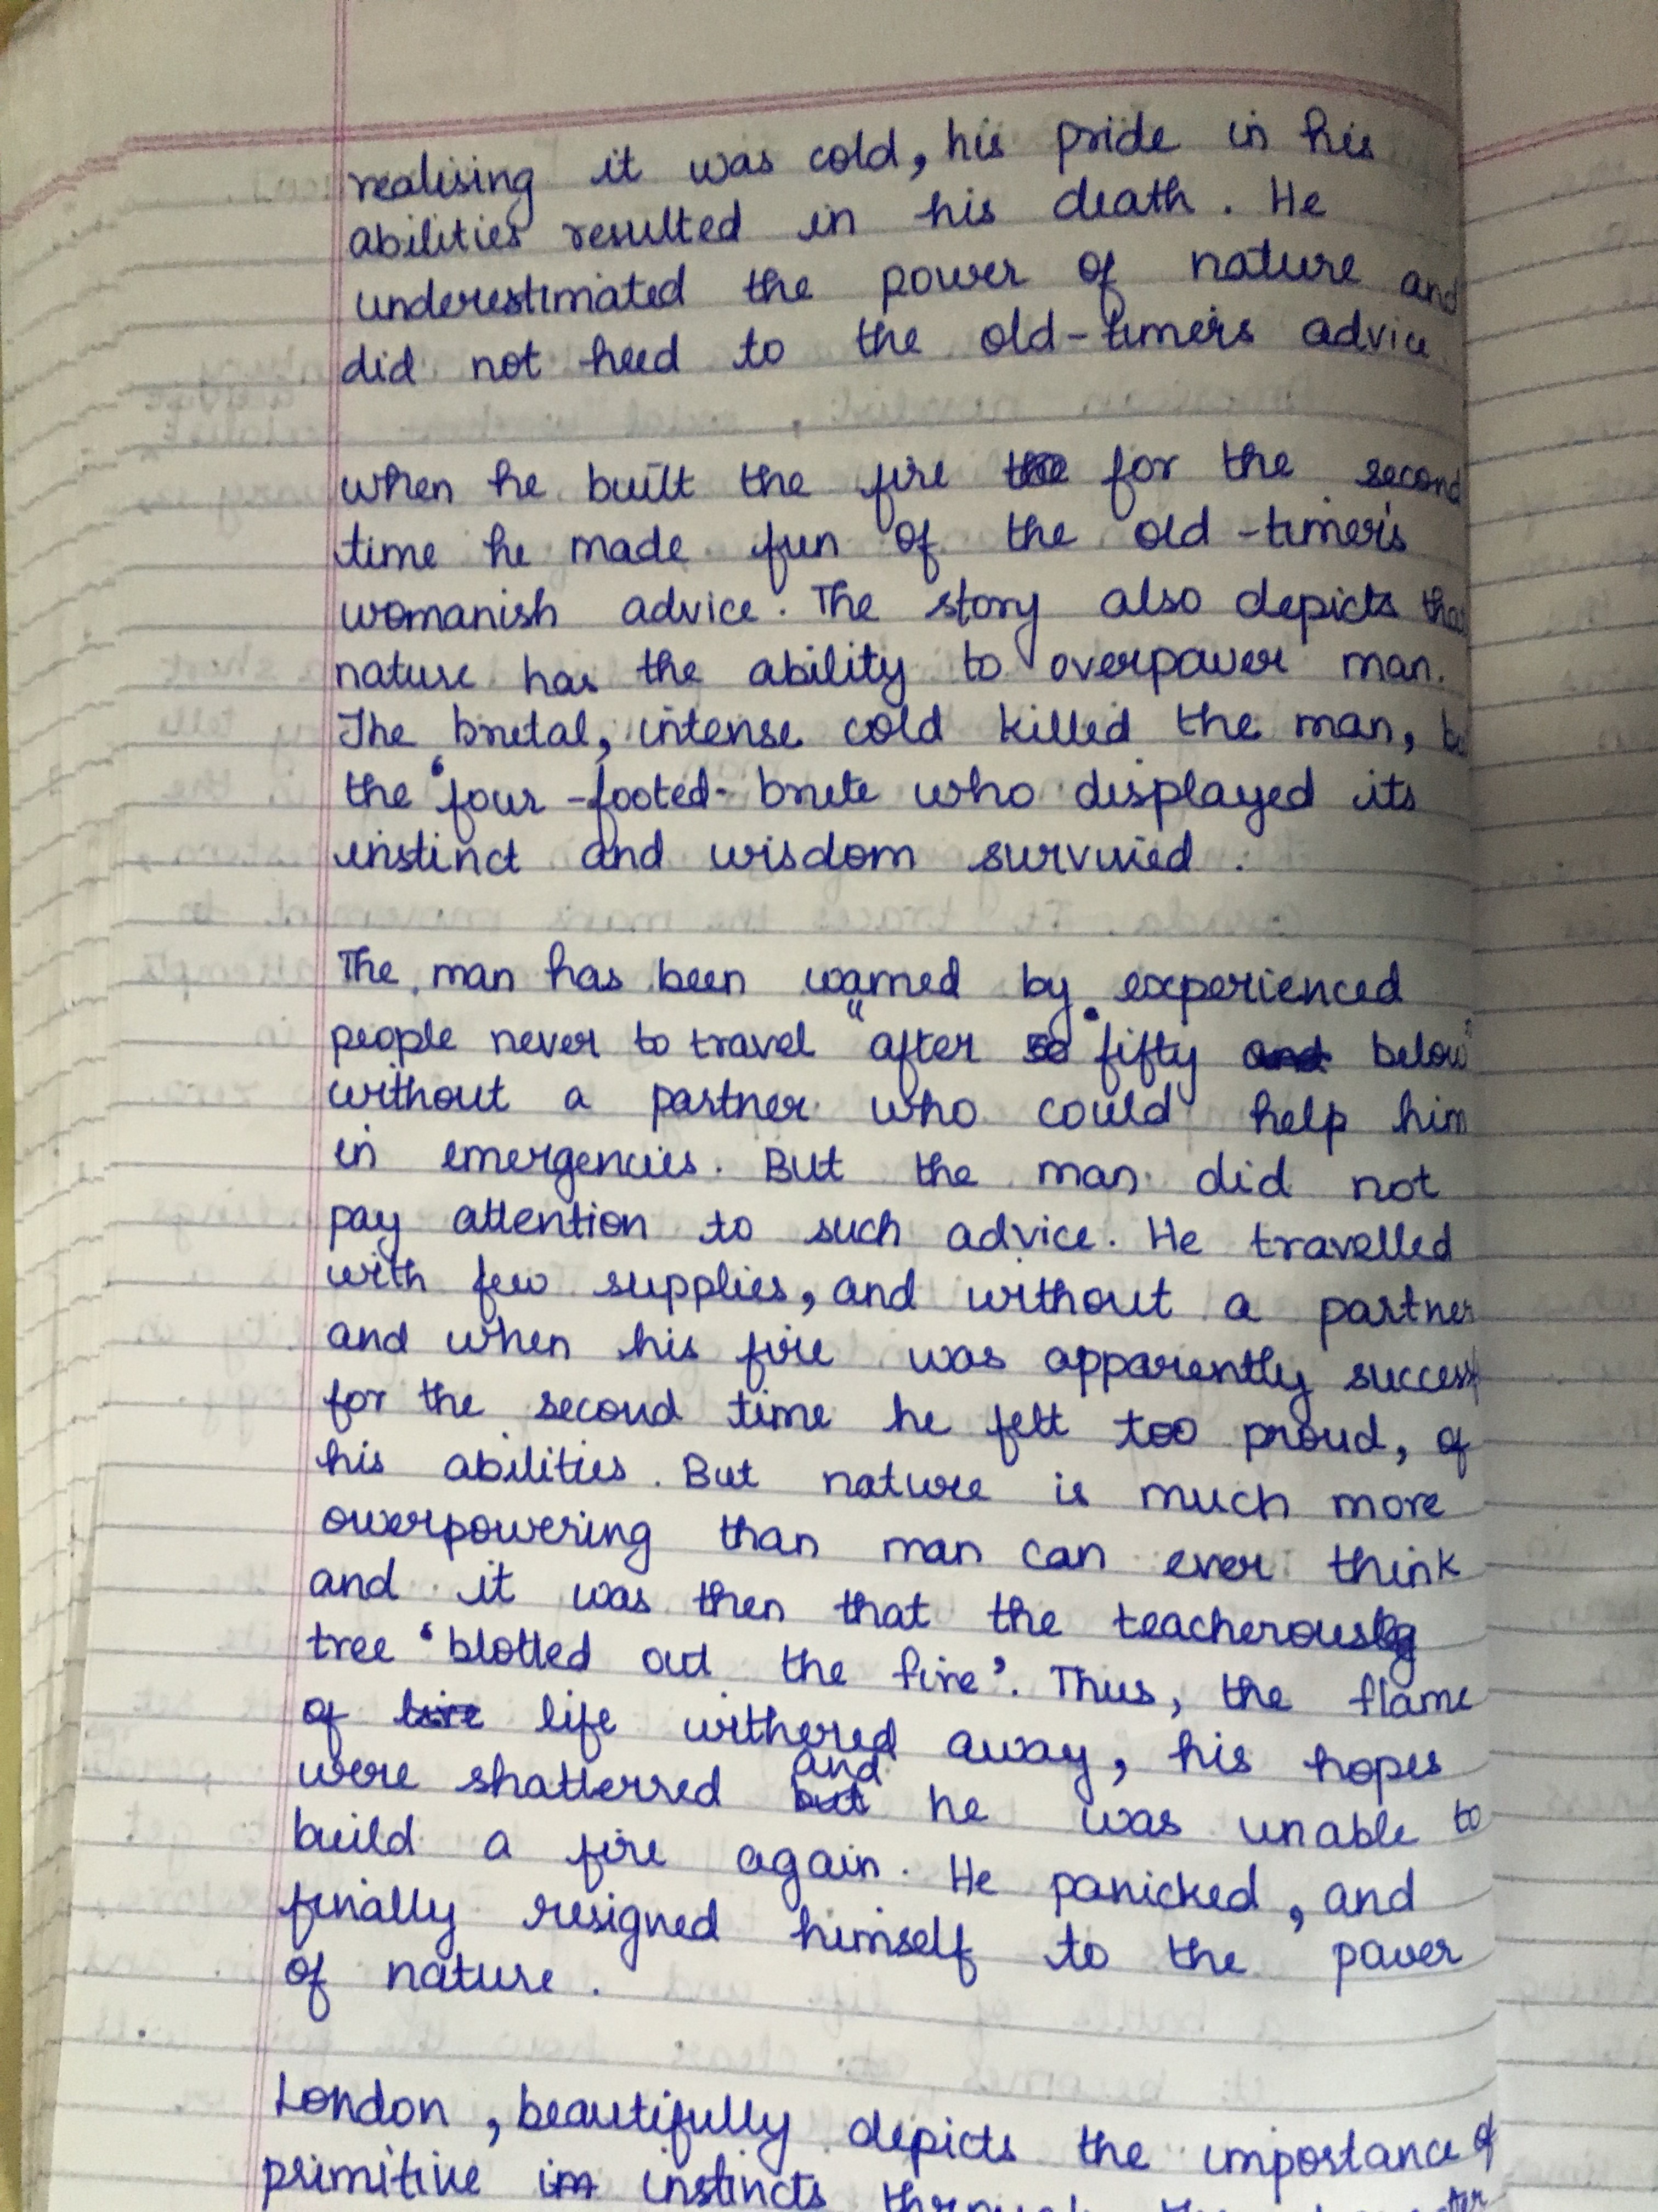 realising it was cold, his pride in his
abilities resulted in his death. He
underestimated the power of nature and
did not heed to the old-timer's advice
when he built the fire for the second
time he made fun of the old-timer's
womanish advice. The story also depicts that
nature has the ability to overpower man.
The brutal, intense cold killed the man,
the 'four-footed-brute who displayed its
instinct and wisdom survuied.
The man has been warned by experienced
people never to travel "after fifty below"
without a partner who could help him
in emergencies. But the man did not
pay attention to such advice. He travelled
with few supplies, and without a partner
and when his fire was apparently success
for the second time he felt too proud, of
his abilities. But nature is much more
overpowering than man can ever think
and it was then that the teacherous
tree 'blotted out the fire'. Thus, the flame
of life withered away, his hopes
were shatterred and he was unable to
build a fire again. He panicked, and
finally resigned himself to the power
of nature.
London, beautifully depicts the importance of
primitive instincts through the